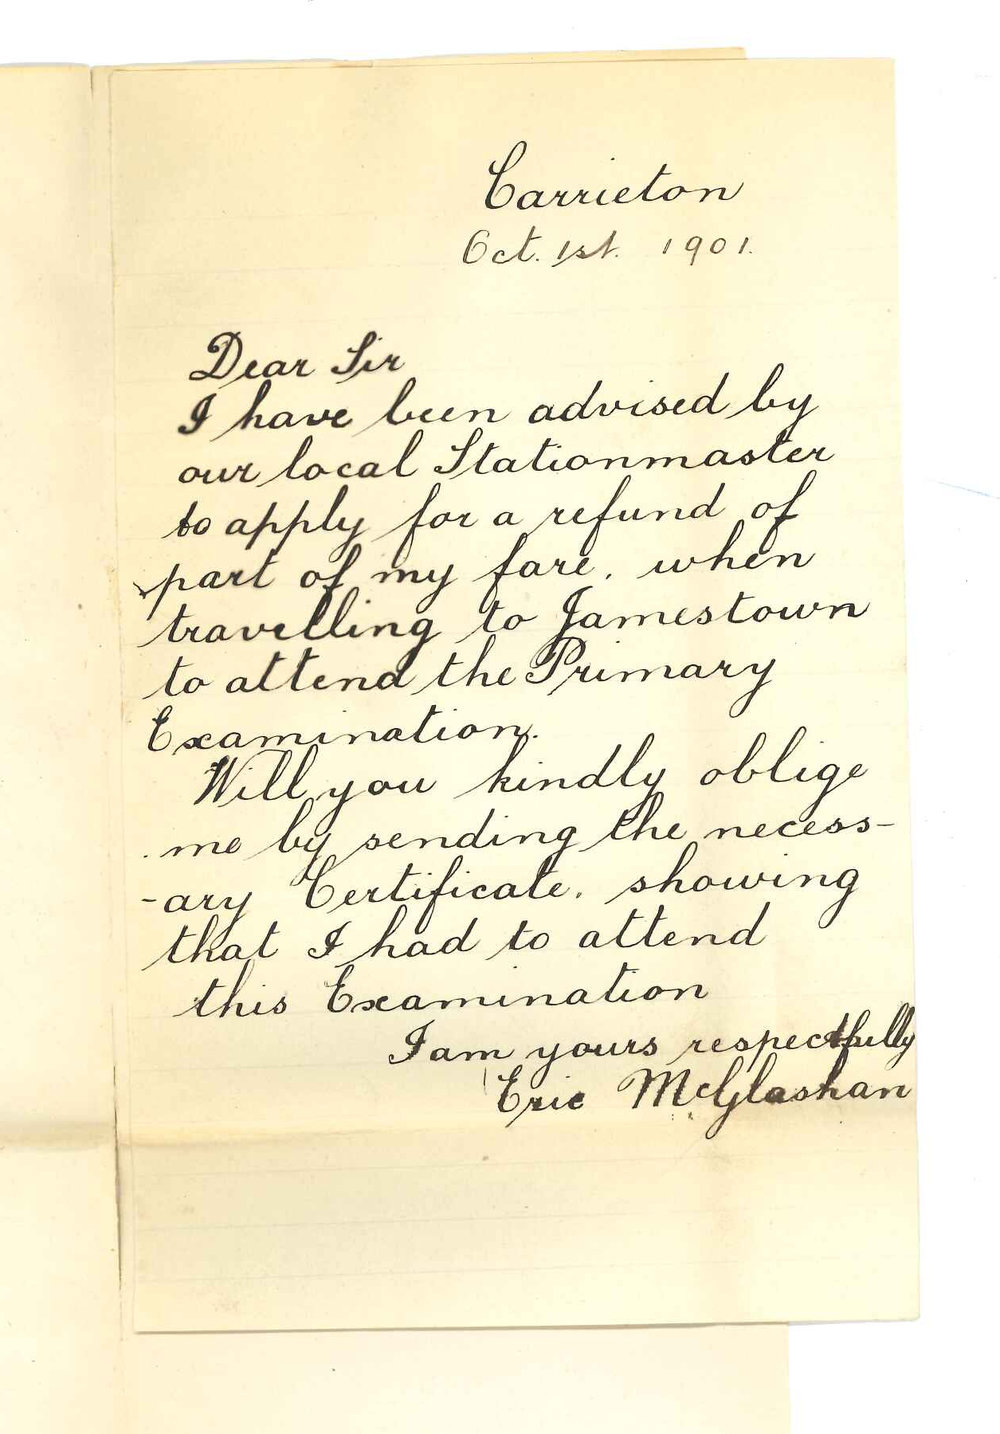 Carrieton
Oct. 1st. 1901.
Dear Sir
I have been advised by
our local Stationmaster
to apply for a refund of
part of my fare. when
travelling to Jamestown
to attend the Primary
Examination.
Will you kindly oblige
me by sending the necess-
-ary Certificate. showing
that I had to attend
this Examination
I am yours respectfully
Eric McGlashan